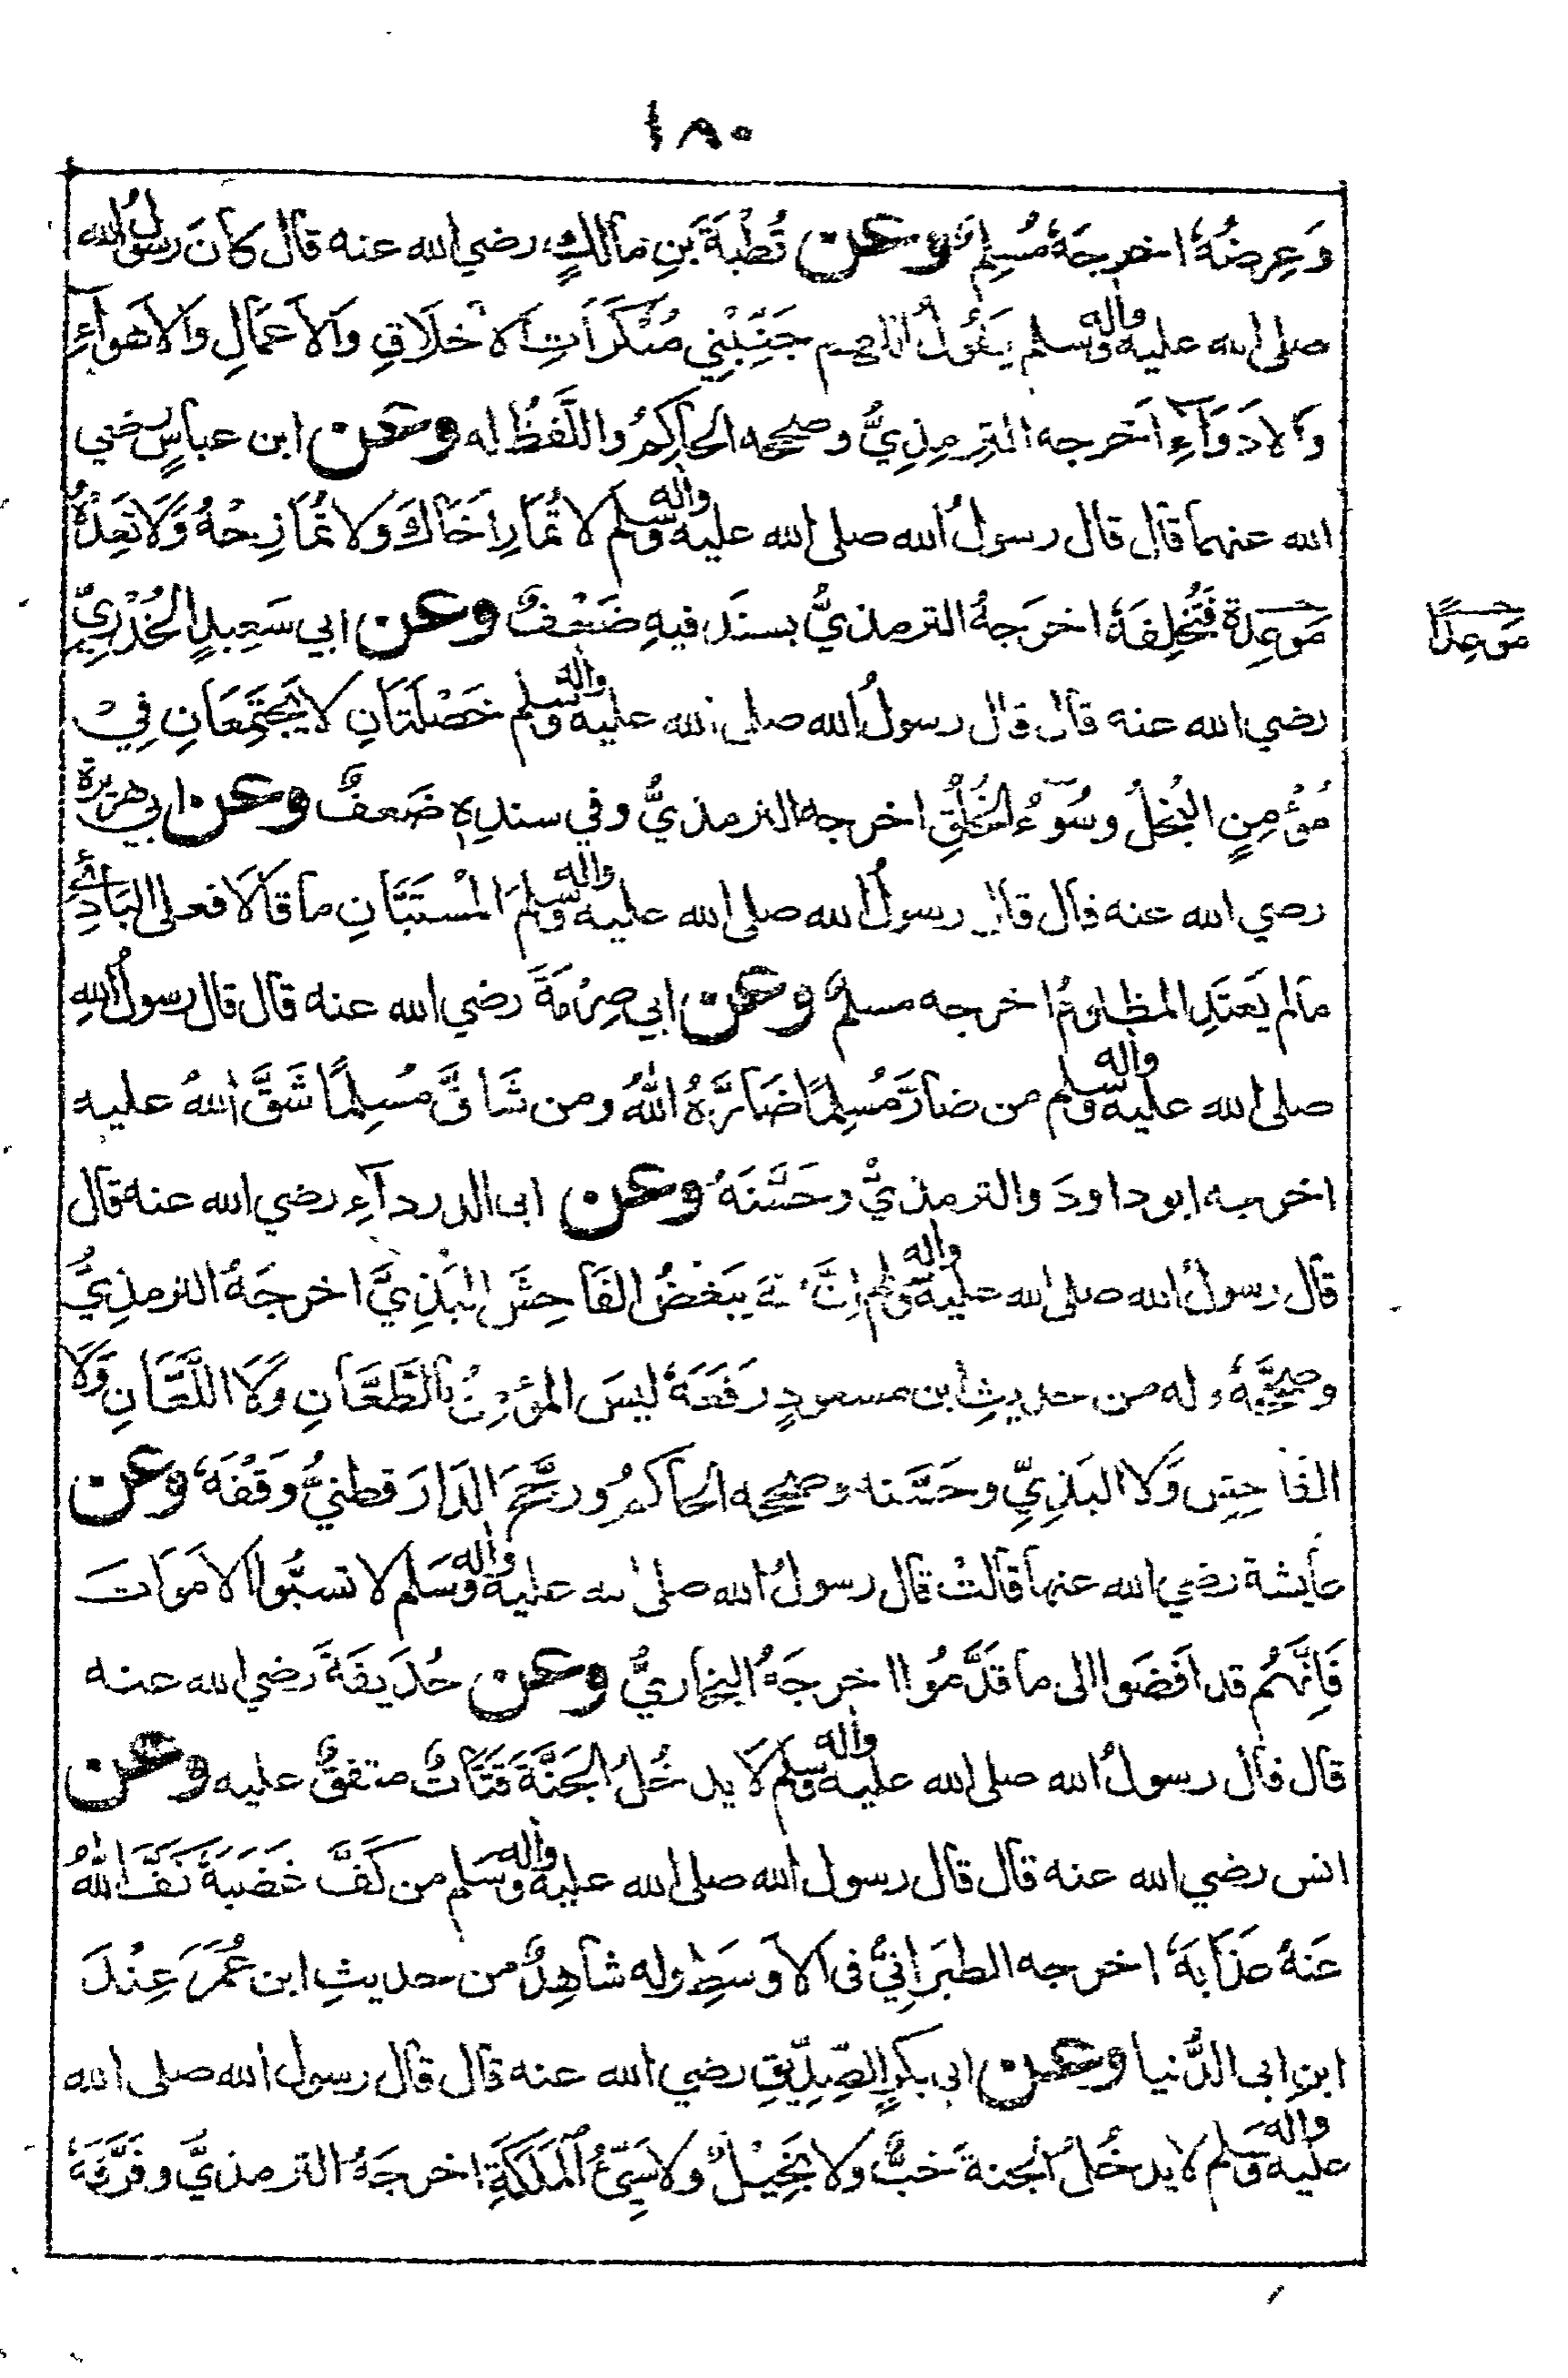 ١٨٠
وَعِرضُهُ اخرجَهُ مُسْلِمٌ وعن قُطْبَةَ بَنِ مالكٍ رضي الله عنه قال كانَ رسولُ الله
صلى الله عليه واٰله وسلم يَقُولُ اللهم جَنِّبْنِي مُنْكَرَاتِ الاخْلَاقِ وَالاَعمَالِ وَالاَهوَآءِ
وَالادَوَآءِ اَخرجه الترمِذِيُّ وصححه الحاكِمُ واللَّفظُ له وعن ابن عباسٍ رضي
الله عنهما قال قال رسولُ الله صلى الله عليه واٰله وسلم لا تُمَارِ اَخَاكَ وَلا تُمَازِحْهُ وَلَا تَعِدْهُ
مَوعِدة فَتُخْلِفَهُ اخرَجَهُ الترمذيُّ بسنَد فيهِ ضَعْفٌ وعن ابي سَعِيدٍ الخُدْرِيِّ
موعِدًا
رضي الله عنه قال قال رسولُ الله صلى الله عليه واٰله وسلم خَصْلَتَانِ لا يَجتَمِعَانِ فِيْ
مُؤْمِنٍ البُخلُ وسُوٓءُ الخُلُقِ اخرجه الترمذيُّ وفي سندِهِ ضَعفٌ وعن ابي هريرة
رضي الله عنه قال قال رسولُ الله صلى الله عليه واٰله وسلم المُسْتَبَّانِ ما قالَا فعلى البَادِئِ
مالم يَعتَدِ المظلومُ اخرجه مسلمٌ وعن ابي صِرْمَةَ رضي الله عنه قال قال رسولُ اللهِ
صلى الله عليه واٰله وسلم من ضارَّ مُسْلِمًا ضَارَّهُ اللهُ ومن شَاقَّ مُسْلِمًا شَقَّ اللهُ عليه
اخرجه ابو داودَ والترمذيُّ وحَسَّنَهُ وعن ابى الدردآءِ رضي الله عنه قال
قال رسولُ الله صلى الله عليه واٰله وسلم اِنَّ الله يَبغَضُ الفَاحِشَ البَذِيَّ اخرجَهُ الترمذِيُّ
وصححَّهُ وله من حديثِ ابن مسعودٍ رَفَعَهُ ليسَ المؤمِنُ بالطَّعَّانِ وَلَا اللَّعَّانِ وَلَا
الفَاحِشِ وَلا البَذِيِّ وحَسَّنه وصححه الحاكمُ ورجَّحَ الدَارَقطنيُّ وَقْفَهُ وعن
عايشة رضي الله عنها قالتْ قال رسولُ الله صلى الله عليه واٰله وسَلم لا تسبُّوا الامَوَاتَ
فَاِنَّهُم قد افَضَوا الى ما قَدَّمُوا اخرجَهُ البخاريُّ وعن حُذَيفَةَ رضي الله عنه
قال قال رسولُ الله صلى الله عليه واٰله وسلم لا يدخُلُ الجَنَّةَ قَتَّاتٌ متفقٌ عليه وعن
انس رضي الله عنه قال قال رسول الله صلى الله عليه واٰله وسَلم من كَفَّ غَضَبَهُ كَفَّ اللهُ
عَنهُ عذَابَهُ اخرجه الطبَرَانِيُّ فى الاَوسَطِ وله شاهِدٌ من حديثِ ابن عُمَرَ عِنْدَ
ابنِ ابى الدُّنيا وعن ابي بكرٍ الصِّدِّيقِ رضي الله عنه قال قال رسول الله صلى الله
عليه واٰله وسَلم لا يدخُلُ الجنةَ خبٌّ ولا بَخِيْلٌ ولا سَيِّئُ المَلَكَةِ اخرجَهُ الترمذيُّ وفَرَّقهُ